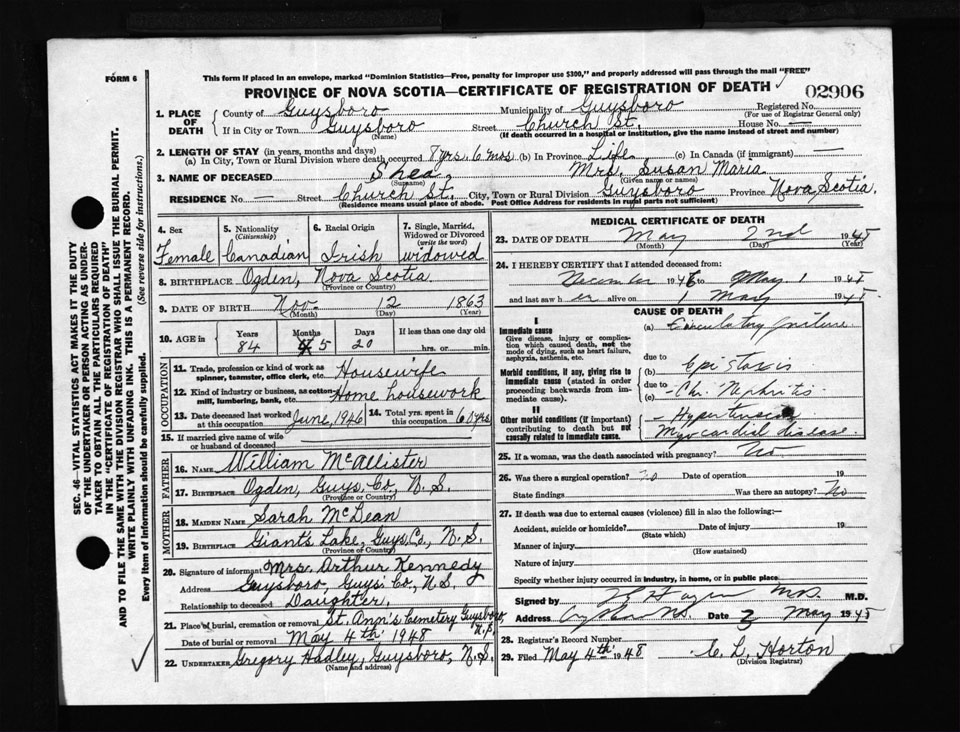 FORM 6
This form if placed in an envelope, marked "Dominion Statistics—Free, penalty for improper use $300," and properly addressed will pass through the mail "FREE"
PROVINCE OF NOVA SCOTIA—CERTIFICATE OF REGISTRATION OF DEATH
02906
SEC. 46—VITAL STATISTICS ACT MAKES IT THE DUTY
OF THE UNDERTAKER OR PERSON ACTING AS UNDER-
TAKER TO OBTAIN ALL THE PARTICULARS REQUIRED
IN THE "CERTIFICATE OF REGISTRATION OF DEATH"
AND TO FILE THE SAME WITH THE DIVISION REGISTRAR WHO SHALL ISSUE THE BURIAL PERMIT.
WRITE PLAINLY WITH UNFADING INK. THIS IS A PERMANENT RECORD.
Every item of Information should be carefully supplied. (See reverse side for instructions.)
1. PLACE OF DEATH
County of Guysboro Municipality of Guysboro Registered No.
(For use of Registrar General only)
If in City or Town Guysboro Street Church St. House No. —
(Name) (If death occurred in a hospital or institution, give the name instead of street and number)
2. LENGTH OF STAY (in years, months and days)
(a) In City, Town or Rural Division where death occurred 8 yrs. 6 mos (b) In Province Life (c) In Canada (if immigrant) —
3. NAME OF DECEASED Shea, Mrs. Susan Maria
(Surname) (Given name or names)
RESIDENCE No. — Street Church St. City, Town or Rural Division Guysboro Province Nova Scotia.
(Residence means usual place of abode. Post Office Address for residents in rural parts not sufficient)
4. Sex
Female
5. Nationality (Citizenship)
Canadian
6. Racial Origin
Irish
7. Single, Married, Widowed or Divorced (write the word)
widowed
8. BIRTHPLACE Ogden, Nova Scotia
(Province or Country)
9. DATE OF BIRTH Nov. 12 1863
(Month) (Day) (Year)
10. AGE in Years 84 Months 5 Days 20 If less than one day old hrs. or min.
OCCUPATION
11. Trade, profession or kind of work as spinner, teamster, office clerk, etc. Housewife
12. Kind of industry or business, as cotton-mill, lumbering, bank, etc. Home housework
13. Date deceased last worked at this occupation June, 1946 14. Total yrs. spent in this occupation 60 yrs
15. If married give name of wife or husband of deceased
FATHER
16. NAME William McAllister
17. BIRTHPLACE Ogden, Guys. Co., N.S.
(Province or Country)
MOTHER
18. MAIDEN NAME Sarah McLean
19. BIRTHPLACE Giants Lake, Guys. Co., N.S.
(Province or Country)
20. Signature of informant Mrs. Arthur Kennedy
Address Guysboro, Guys. Co., N.S.
Relationship to deceased Daughter.
21. Place of burial, cremation or removal St. Ann's Cemetery Guysboro, N.S.
Date of burial or removal May 4th 1948
22. UNDERTAKER Gregory Hadley, Guysboro, N.S.
(Name and address)
MEDICAL CERTIFICATE OF DEATH
23. DATE OF DEATH May 2nd 1948
(Month) (Day) (Year)
24. I HEREBY CERTIFY that I attended deceased from:
December 194 to May 1 1948
and last saw her alive on 1 May 1948
CAUSE OF DEATH
I
Immediate cause
Give disease, injury or complication which caused death, not the mode of dying, such as heart failure, asphyxia, asthenia, etc.
(a) Circulatory failure
due to
Morbid conditions, if any, giving rise to immediate cause (stated in order proceeding backwards from immediate cause).
(b) Epistaxis
due to
(c) Chr. Nephritis
II
Other morbid conditions (if important) contributing to death but not causally related to immediate cause.
Hypertension
Myocardial disease.
25. If a woman, was the death associated with pregnancy? No
26. Was there a surgical operation? No Date of operation 19
State findings Was there an autopsy? No
27. If death was due to external causes (violence) fill in also the following:—
Accident, suicide or homicide? Date of injury 19
(State which)
Manner of injury
(How sustained)
Nature of injury
Specify whether injury occurred in industry, in home, or in public place
Signed by M.D. M.D.
Address N.S. Date 3 May 1948
28. Registrar's Record Number
29. Filed May 4th 1948 C. L. Horton
(Division Registrar)